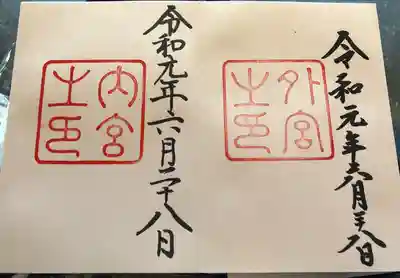 令和元年六月二十八日
外宮
之印
令和元年六月二十八日
内宮
之印